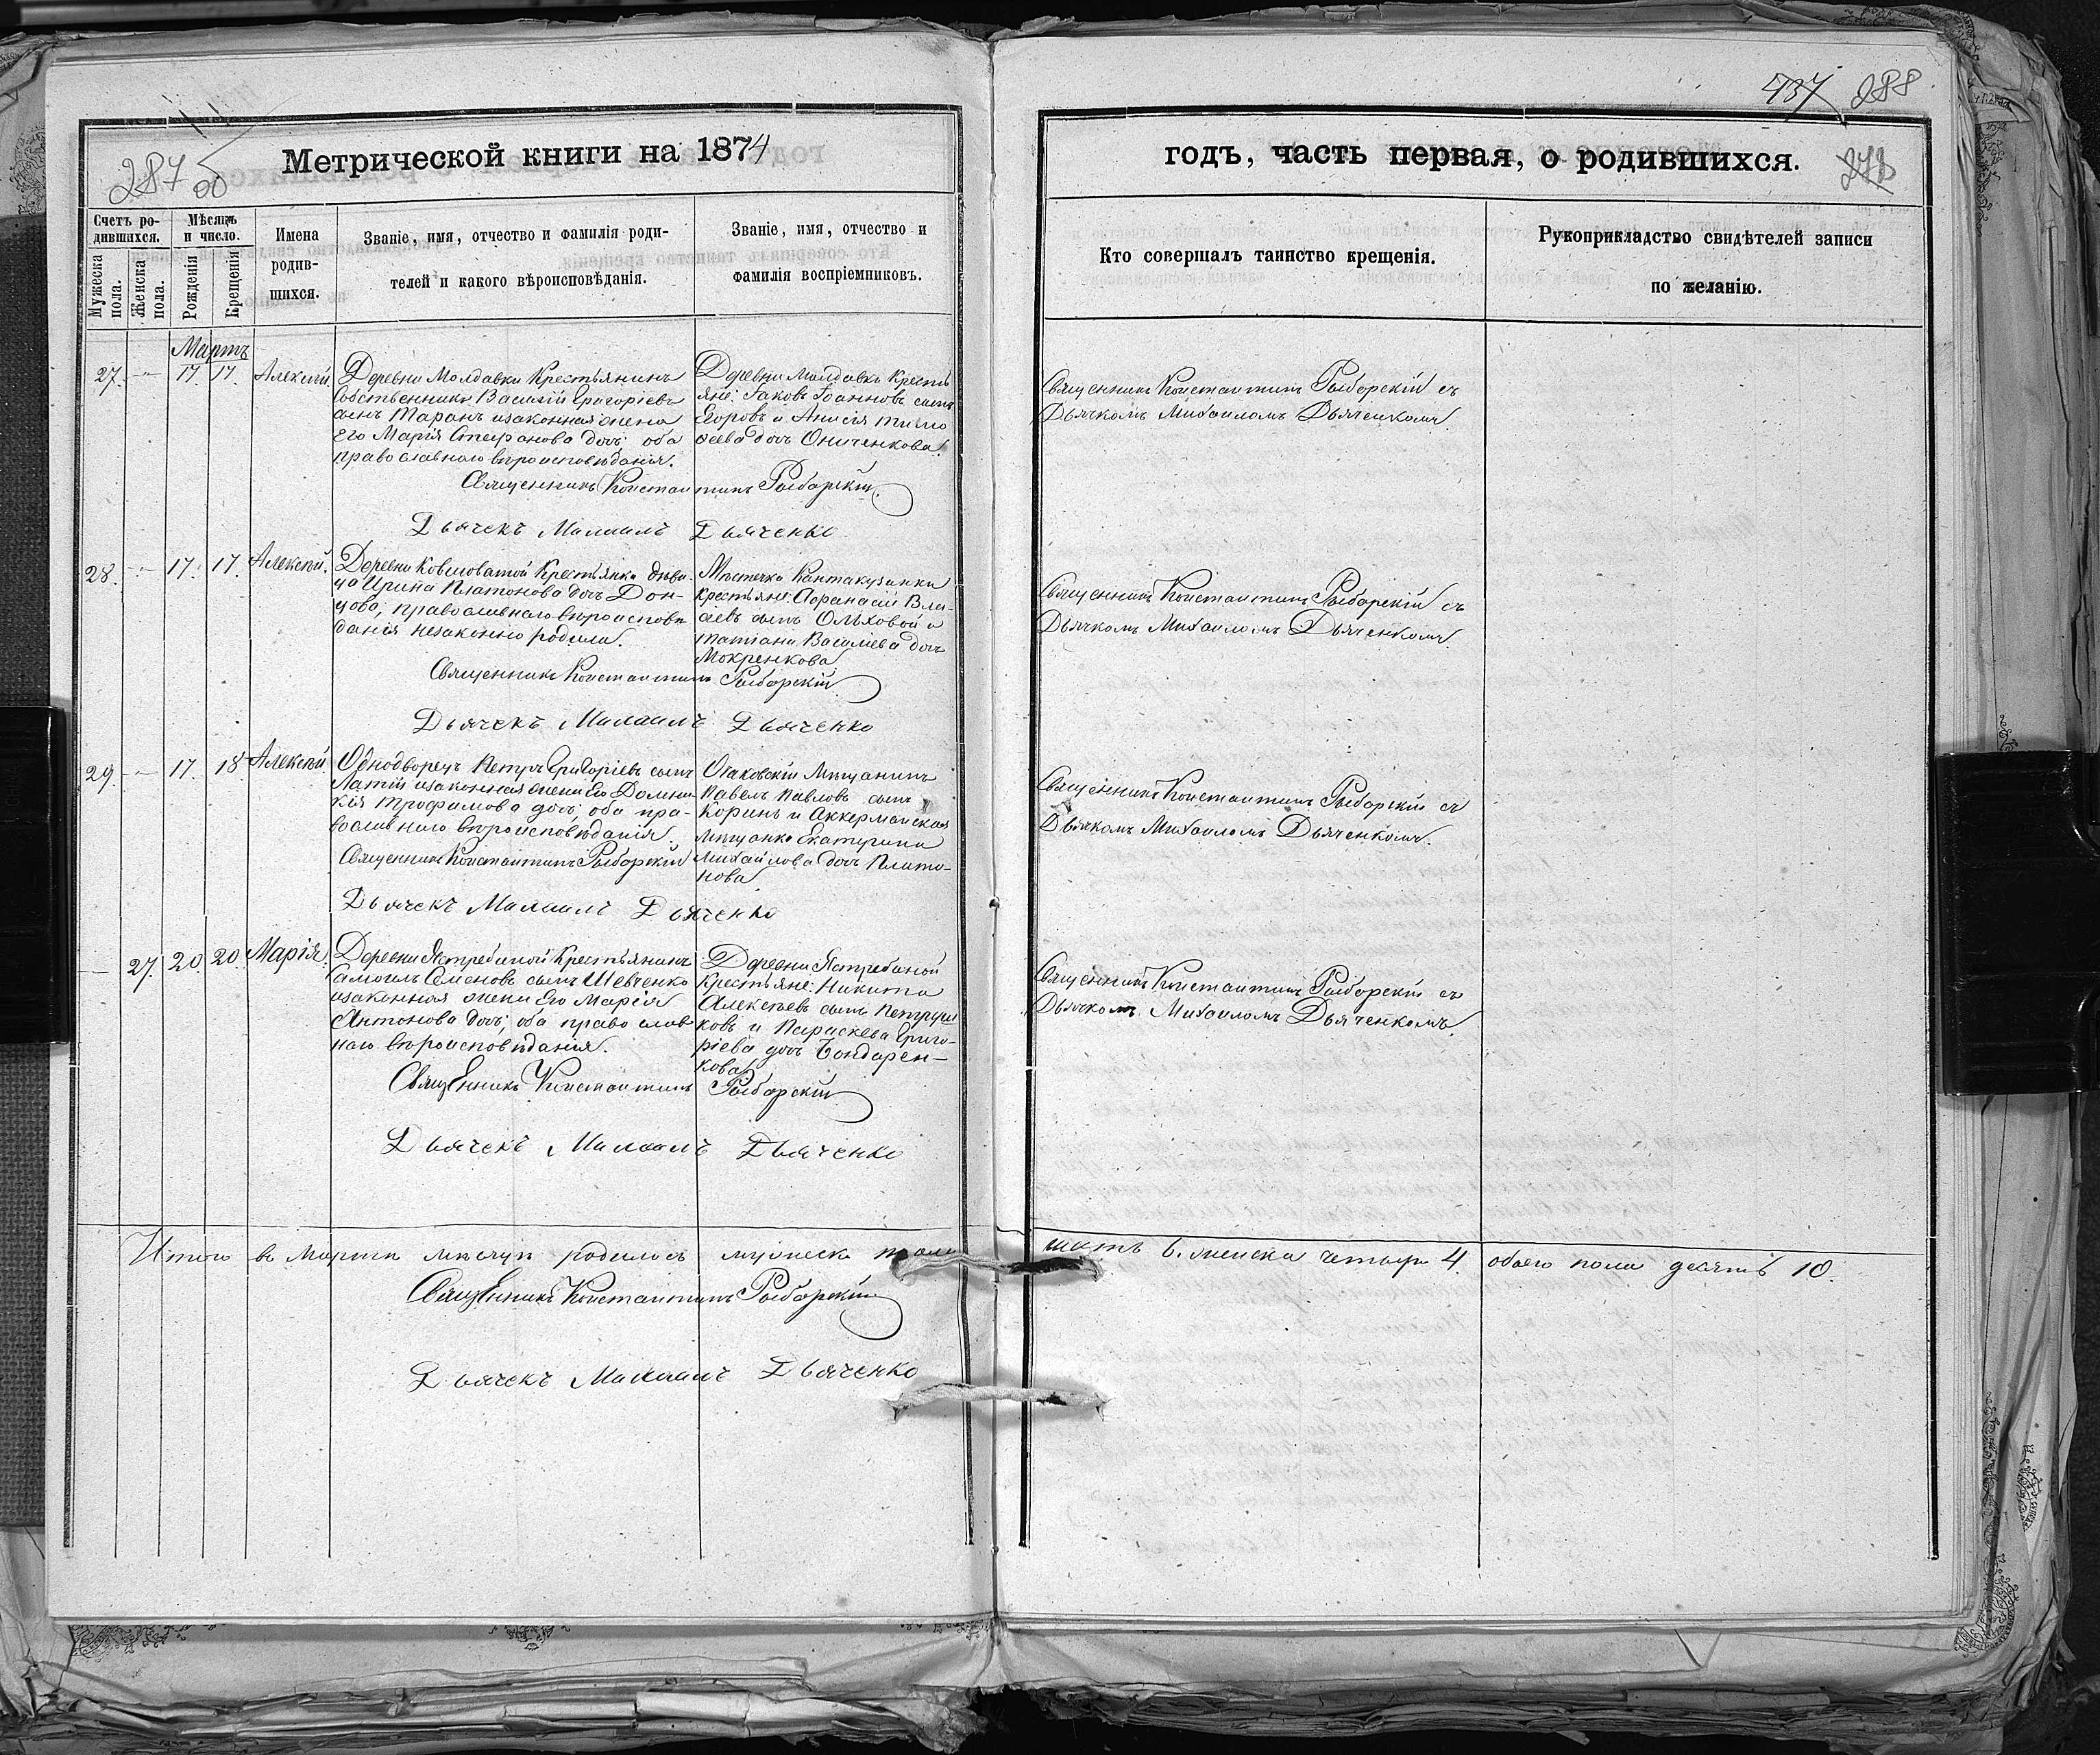 287 об
Метрической книги на 1874
Счетъ ро-
дившихся.
Мѣсяцъ
и число.
Мужеска
пола.
Женска
пола.
Рожденія
Крещенія
Имена
родив-
шихся.
Званіе, имя, отчество и фамилія роди-
телей и какого вѣроисповѣданія.
Званіе, имя, отчество и
фамилія воспріемниковъ.
Мартъ
27. — 17. 17. Алексѣй.
Деревни Молдавки Крестьянинъ
Собственникъ Василій Григоріевъ
сынъ Таранъ изаконная жена
Его Марія Стефанова дочь: оба
православнаго вѣроисповѣданія.
Деревни Молдавки Кресть
яне: Іаковъ Іоанновъ сынъ
Егоровъ и Анисія Тимо
ѳеева дочь Ониченкова.
Священникъ Константинъ Рыбарскій.
Дьячекъ Михаилъ Дьяченко
28. — 17. 17. Алексѣй.
Деревни Ковиловатой Крестьянка дѣви-
ца Ирина Платонова дочь Дон-
цова, православнаго вѣроисповѣ
данія незаконно родила.
Мѣстечка Кантакузинки
крестьяне: Аѳанасій Вла-
сіевъ сынъ Ольховой и
Татіана Василіева дочь
Мокренкова
Священникъ Константинъ Рыбарскій
Дьячекъ Михаилъ Дьяченко
29. — 17. 18. Алексѣй.
Однодворецъ Петръ Григоріевъ сынъ
Латій изаконная жена Его Домни-
кія Трофимова дочь; оба пра-
вославнаго вѣроисповѣданія.
Очаковскій Мѣщанинъ
Павелъ Павловъ сынъ
Коринъ и Аккерманская
Мѣщанка Екатерина
Михайлова дочь Плато-
нова
Священникъ Константинъ Рыбарскій
Дьячекъ Михаилъ Дьяченко
— 27. 20. 20. Марія.
Деревни Ястребиной Крестьянинъ
Самоилъ Семеновъ сынъ Шевченко
изаконная жена Его Марія
Антонова дочь; оба православ
наго вѣроисповѣданія.
Деревни Ястребиной
Крестьяне: Никита
Алексѣевъ сынъ Петруш
ковъ и Параскева Григо-
ріева дочь Бондарен-
кова
Священникъ Константинъ Рыбарскій
Дьячекъ Михаилъ Дьяченко
Итого въ Мартѣ мѣсяцѣ родилось мужеска пола
Священникъ Константинъ Рыбарскій
Дьячекъ Михаилъ Дьяченко
288
годъ, часть первая, о родившихся.
Кто совершалъ таинство крещенія.
Рукоприкладство свидѣтелей записи
по желанію.
Священникъ Константинъ Рыбарскій съ
Дьячкомъ Михаиломъ Дьяченкомъ.
Священникъ Константинъ Рыбарскій съ
Дьячкомъ Михаиломъ Дьяченкомъ.
Священникъ Константинъ Рыбарскій съ
Дьячкомъ Михаиломъ Дьяченкомъ.
Священникъ Константинъ Рыбарскій съ
Дьячкомъ Михаиломъ Дьяченкомъ.
шесть 6. женска четыре 4. обоего пола десять 10.